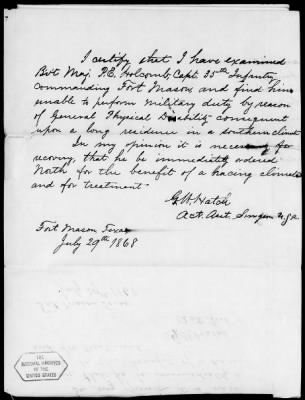 I certify that I have examined
Bvt Maj. P.E. Holcomb, Capt. 35th Infantry,
commanding Fort Mason, and find him
unable to perform military duty by reason
of General Physical Disability consequent
upon a long residence in a southern climate
In my opinion it is necessary for
recovery, that he be immediately ordered
North for the benefit of a bracing climate
and for treatment
G.W. Hatch
Act. Asst. Surgeon U.S.A.
Fort Mason Texas
July 29th 1868
THE
NATIONAL ARCHIVES
OF THE
UNITED STATES